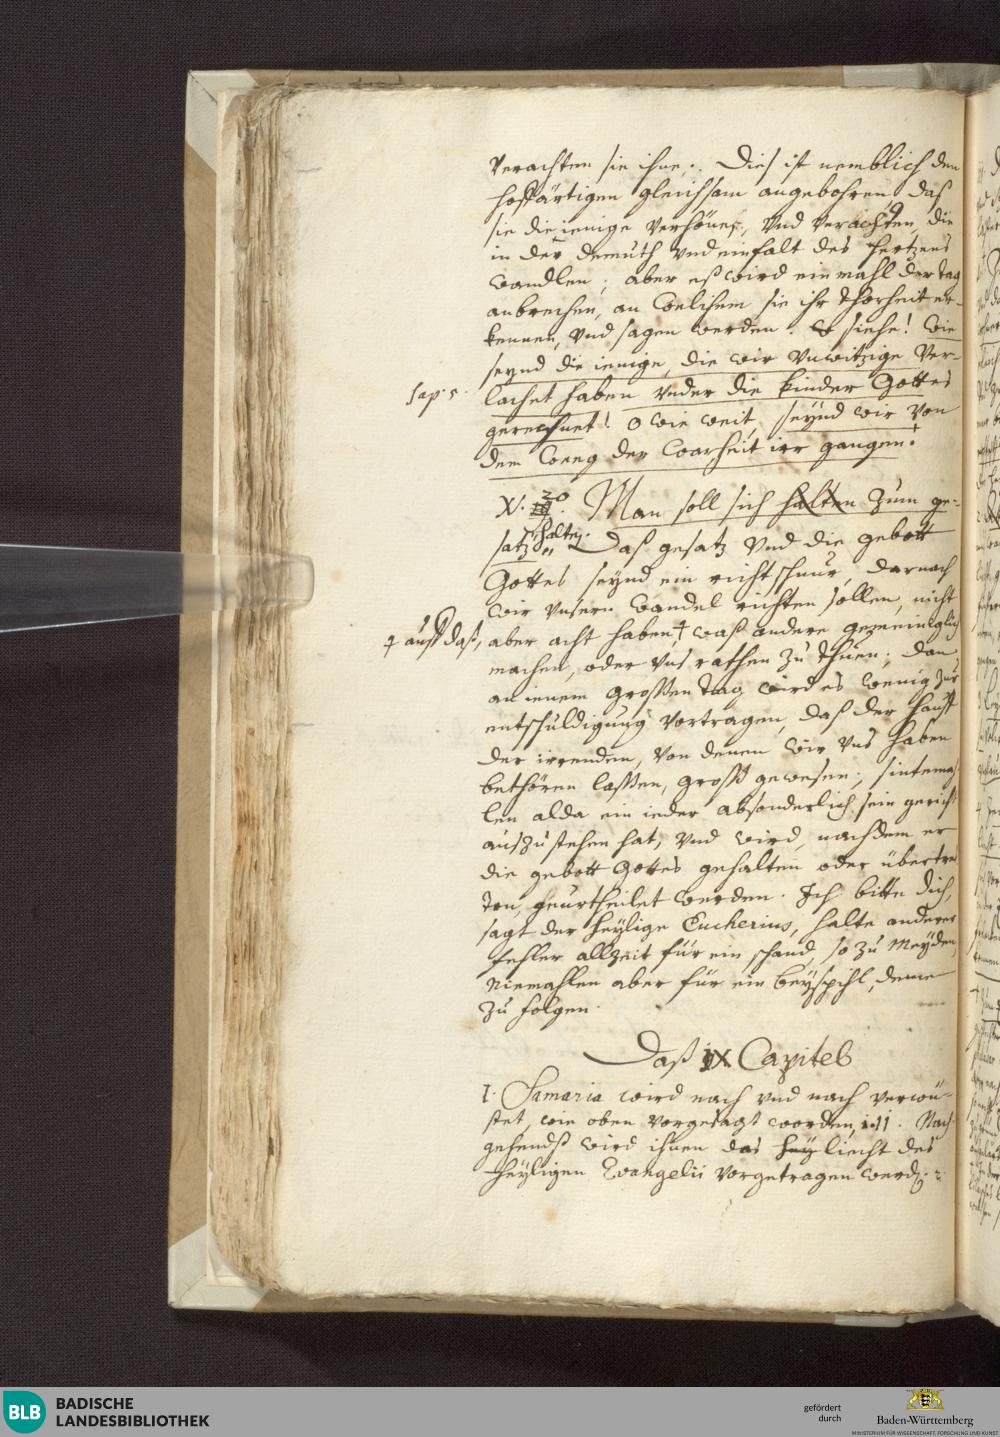 verachten sie ihne. Dies ist nemblich den
hoffärtigen gleichsam angebohren, daß
sie die ienige verhönen, vnd verachten, die
in der demuth vnd einfalt des hertzens
wandlen; aber eß wird ein mahl der tag
anbrechen, an welchem sie ihr thorheit er-
kennen, vnd sagen werden: siehe! wie
seynd die ienige, die wir vnwitzige ver-
Sap. 5.
lachet haben vnder die kinder Gottes
gerechnet! o wie weit seynd wir von
dem weeg der warheit irr gangen!
V. 20. Man soll sich halten zum ge-
satz halten. Daß gesatz vnd die gebott
Gottes seynd ein richtschnur, darnach
wir vnsern wandel richten sollen, nicht
+ auff daß,
aber acht haben + waß andere gemeiniglich
machen, oder vns rathen zu thuen; dan
an ienem grossen tag wird es wenig zur
entschuldigung vortragen, daß der hauff
der irrenden, von denen wir vns haben
bethören lassen, groß gewesen; sintemah-
len alda ein ieder absonderlich sein gericht
auszustehen hat, vnd wird, nachdem er
die gebott Gottes gehalten oder übertre-
ten, geurtheilet werden. Ich bitte dich,
sagt der heylige Eucherius, halte anderer
fehler allzeit für ein schand, so zu meyden,
niemahlen aber für ein beyspihl, deme
zu folgen.
Daß IX Capitel
I. Samaria wird nach vnd nach verwü-
stet, wie oben vorgesagt worden, Nach-
gehends wird ihnen das hey liecht des
heyligen Evangelii vorgetragen werden.
BLB BADISCHE
LANDESBIBLIOTHEK
gefördert
durch
Baden-Württemberg
MINISTERIUM FÜR WISSENSCHAFT, FORSCHUNG UND KUNST